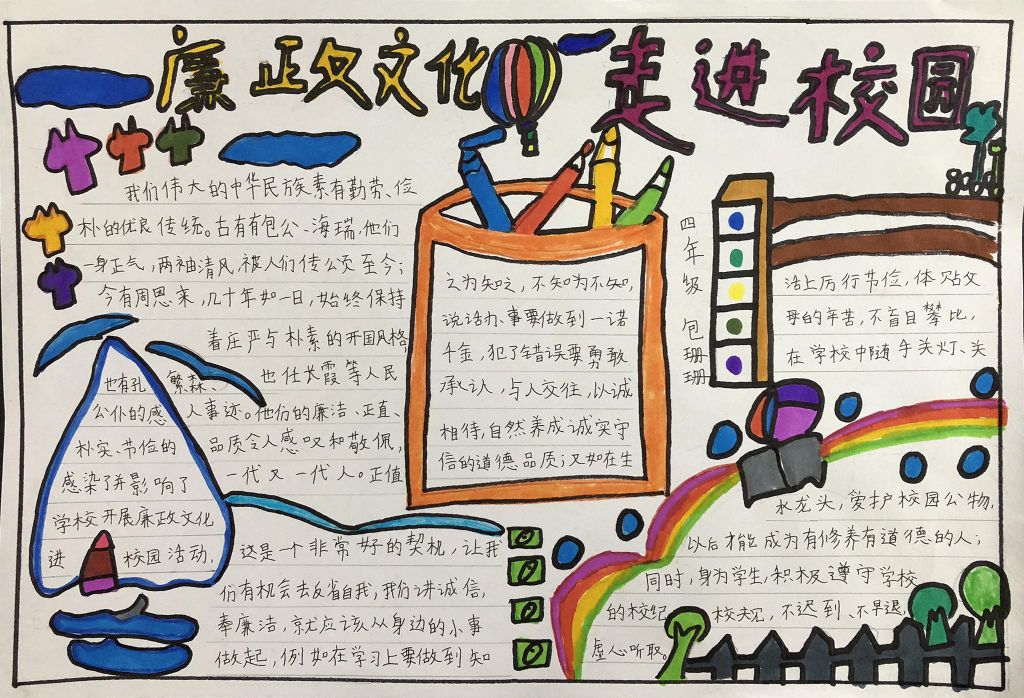 廉正文文化 走进校园
我们伟大的中华民族素有勤劳、俭
朴的优良传统。古有有包公、海瑞,他们
一身正气,两袖清风,被人们传公页至今;
今有周恩来,几十年如一日,始终保持
着庄严与朴素的开国风格
也有孔繁森、也任长霞等人民
公仆的感人事迹。他们的廉洁、正直、
朴实、节俭的品质令人感叹和敬佩,
感染了并影响了一代又一代人。正值
学校开展廉政文化
进校园活动,这是一个非常好的契机,让我
们有机会去反省自我,我们讲诚信,
奉廉洁,就应该从身边的小事
做起,例如在学习上要做到知
之为知之,不知为不知,
说话办事要做到一诺
千金,犯了错误要勇敢
承认,与人交往,以诚
相待,自然养成诚实守
信的道德品质;又如在生
四年级 包珊珊
活上厉行节俭,体贴父
母的辛苦,不盲目攀比,
在学校中随手关灯、关
水龙头,爱护校园公物,
以后才能成为有修养有道德的人;
同时,身为学生,积极遵守学校
的校纪校规,不迟到、不早退,
虚心听取。